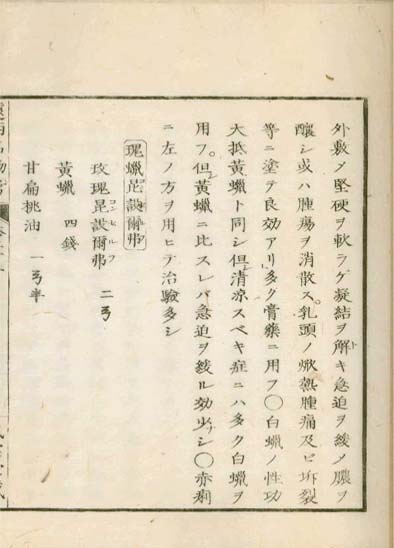 外敷メ堅硬ヲ軟ラゲ凝結ヲ解キ急迫ヲ緩メ膿ヲ
醸シ或ハ腫瘍ヲ消散ス。乳頭ノ焮熱腫痛及ビ坼裂
等ニ塗テ良効アリ多ク膏藥ニ用フ〇白蝋ノ性功
大抵黄蝋ト同シ但シ清凉スベキ症ニハ多ク白蝋ヲ
用フ。但シ黄蝋ニ比スレバ急迫ヲ緩ル効少シ〇赤痢
ニ左ノ方ヲ用ヒテ治驗多シ
瑰蝋昆設爾弗
玫瑰昆設爾弗 コンセルフ 二弓
黄蝋 四錢
甘扁桃油 一弓半